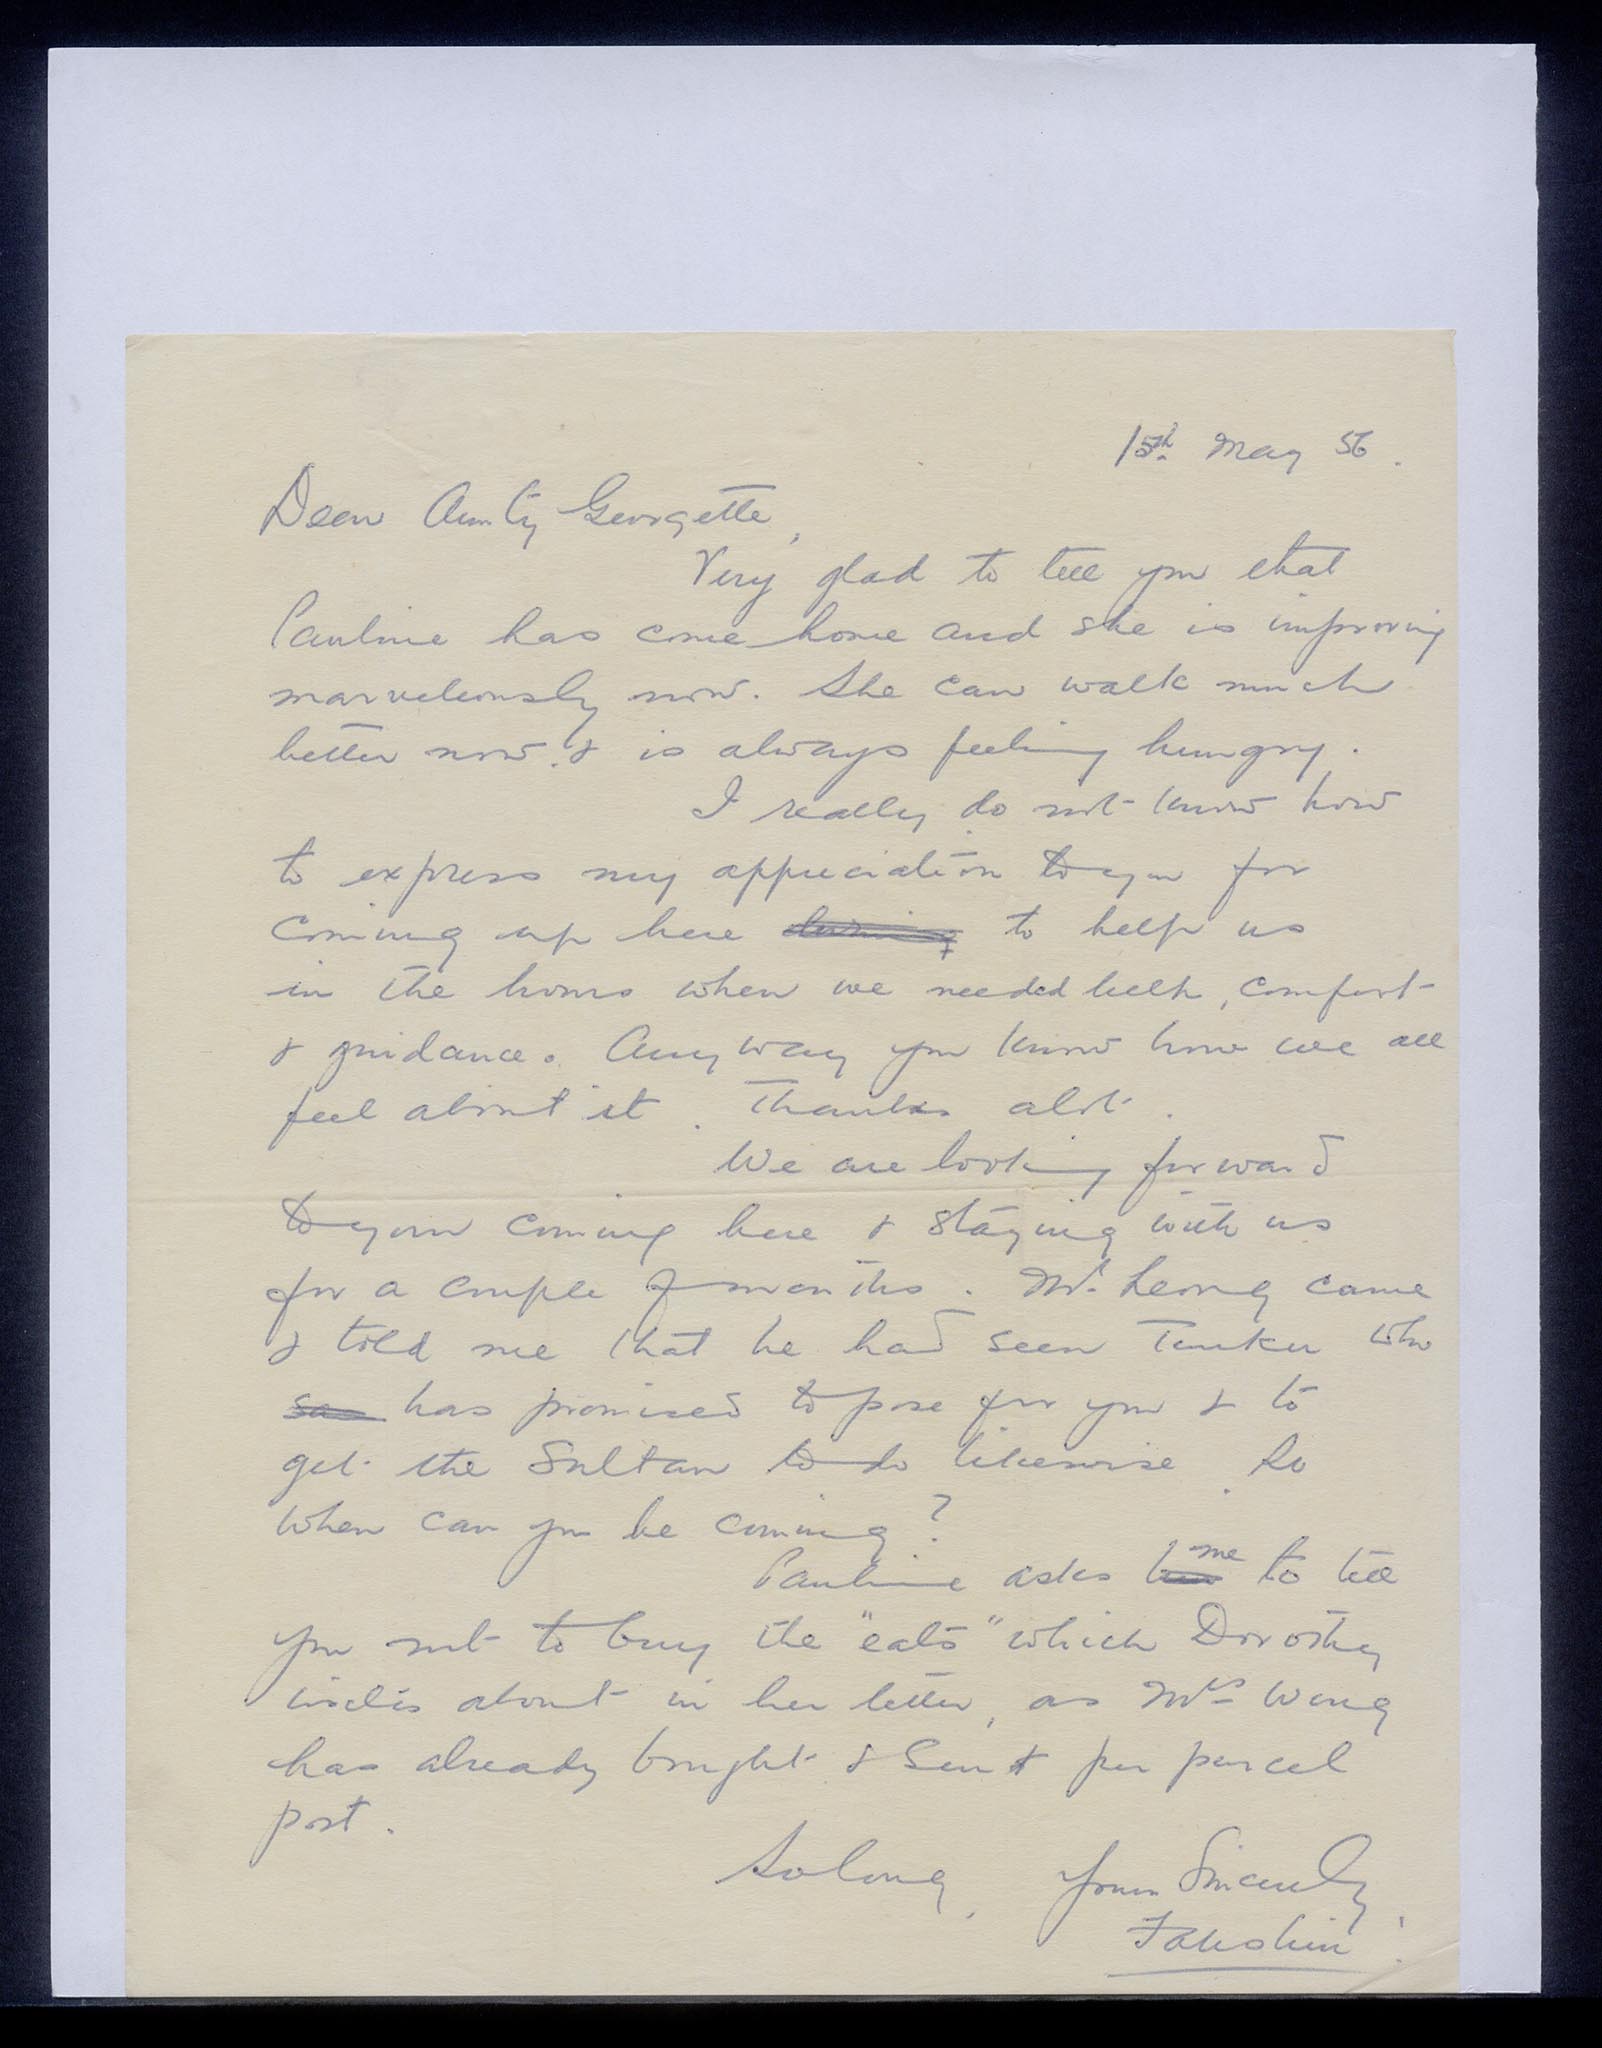 15th May 56.
Dear Aunty Georgette,
Very glad to tell you that
Pauline has come home and she is improving
marvelously now. She can walk much
better now. & is always feeling hungry.
I really do not know how
to express my appreciation to you for
coming up here during to help us
in the hours when we needed help, comfort
& guidance. Anyway you know how we all
feel about it. Thanks alot.
We are looking forward
to your coming here & staying with us
for a couple of months. Mr. Leong came
& told me that he had seen Tunku who
sa has promised to pose for you & to
get the Sultan to do likewise. So
when can you be coming?
Pauline asks me to tell
you not to buy the "eats" which Dorothy
about in her letter, as Mrs Wong
has already bought & sent per parcel
post.
So long, Yours Sincerely